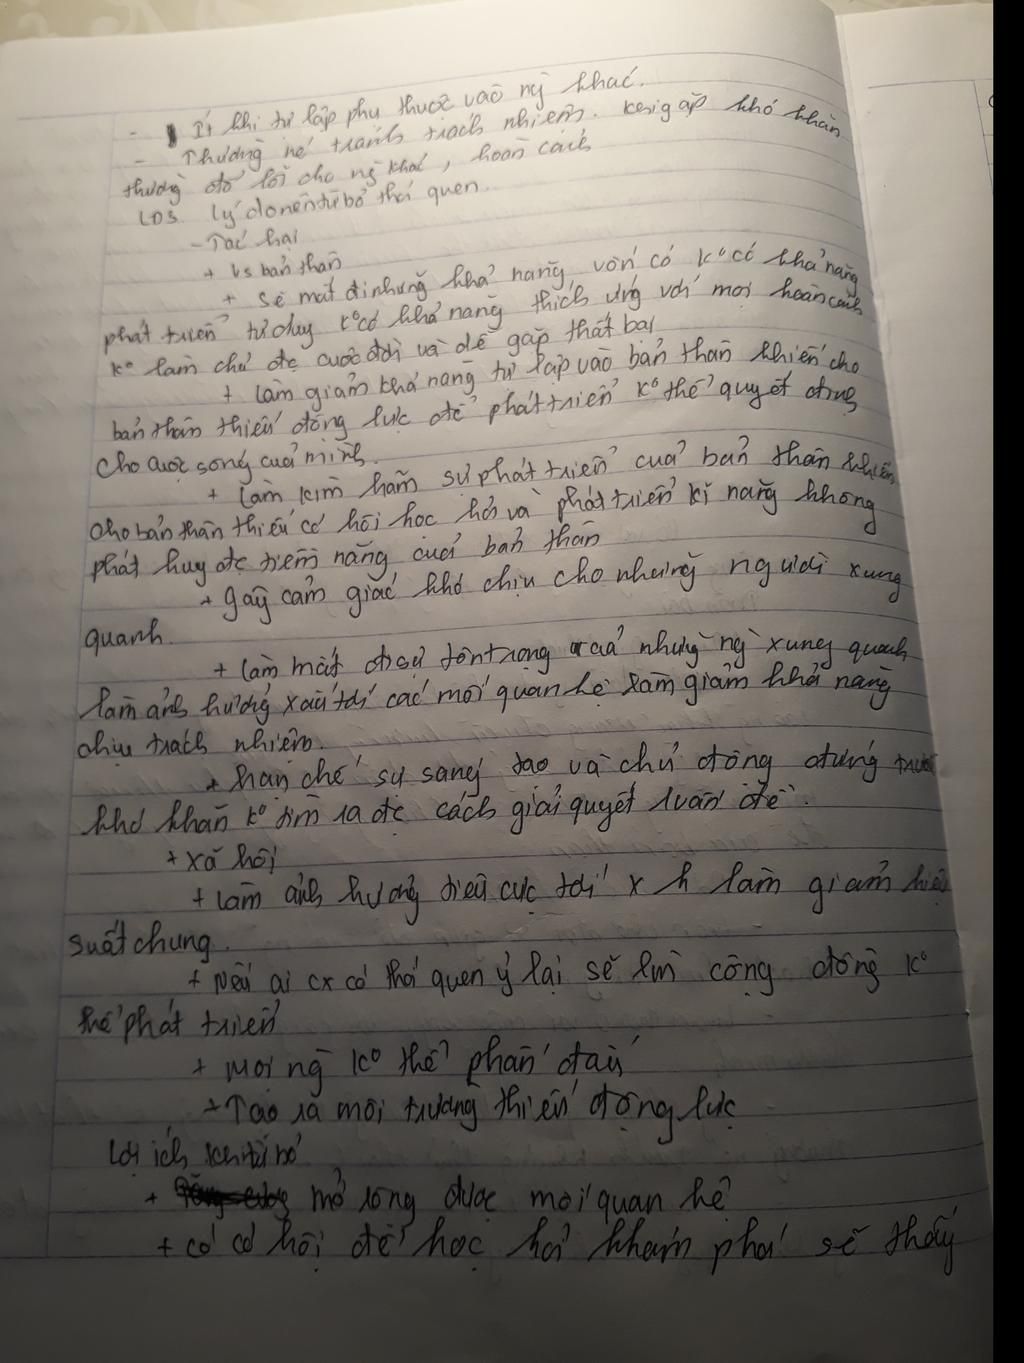 - Ít khi tự lập phụ thuộc vào ng khác.
- Thường né tránh trách nhiệm. khi gặp khó khăn
thường đổ lỗi cho ng khác, hoàn cảnh
LĐ3. lý do nên từ bỏ thói quen.
- Tác hại
+ Vs bản thân
+ sẽ mất đi những khả năng vốn có k° có khả năng
phát triển tư duy k° có khả năng thích ứng với mọi hoàn cảnh
k° làm chủ đc cuộc đời và dễ gặp thất bại
+ làm giảm khả năng tự lập vào bản thân khiến cho
bản thân thiếu động lực để phát triển k° thể quyết định
cho cuộc sống của mình.
+ làm kìm hãm sự phát triển của bản thân khiến
cho bản thân thiếu cơ hội học hỏi và phát triển kĩ năng không
phát huy đc tiềm năng của bản thân
+ gây cảm giác khó chịu cho những người xung
quanh.
+ làm mất đi sự tôn trọng của những ng xung quanh
làm ảnh hưởng xấu tới các mối quan hệ làm giảm khả năng
chịu trách nhiệm.
+ hạn chế sự sáng tạo và chủ động đứng trước
khó khăn k° tìm ra đc cách giải quyết vấn đề.
+ xã hội
+ làm ảnh hưởng tiêu cực tới x h làm giảm hiệu
suất chung.
+ nếu ai cx có thói quen ỷ lại sẽ làm cộng đồng k°
thể phát triển
+ mọi ng k° thể phấn đấu
+ Tạo ra môi trường thiếu động lực
Lợi ích khi từ bỏ
+ mở rộng được mối quan hệ
+ có cơ hội để học hỏi khám phá sẽ thấy